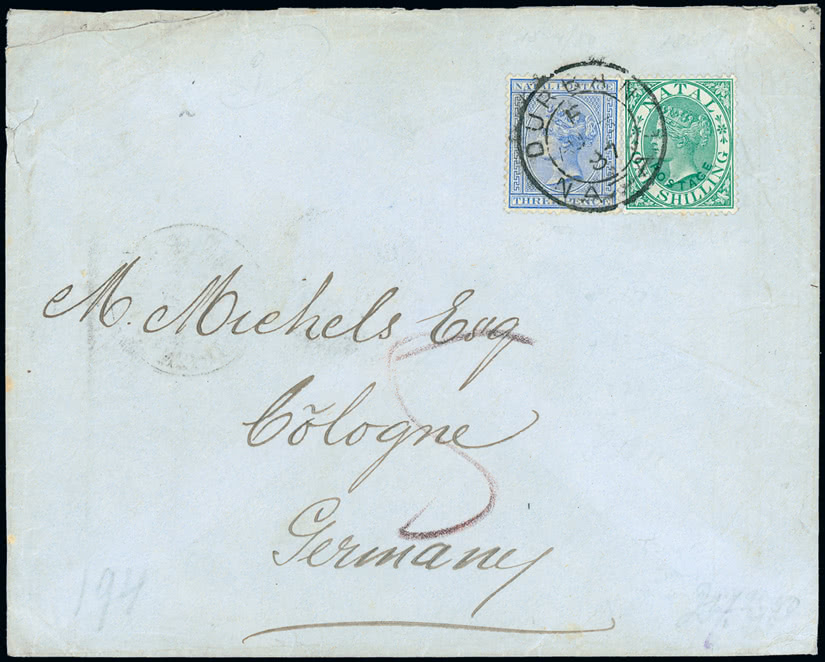 NATAL POSTAGE
THREE PENCE
NATAL
POSTAGE
SHILLING
DURBAN
NATAL
87
M. Michels Esq
Cölogne
Germany
5
194